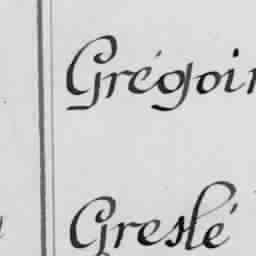 Grégoir
Greslé